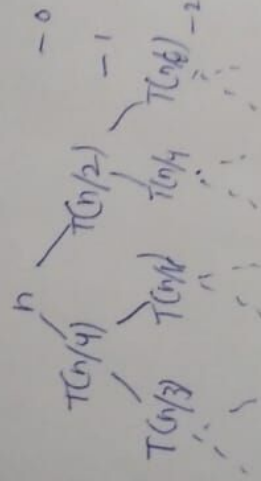 n - 0
T(n/4) T(n/2) - 1
T(n/3) T(n/4 T(n/6) - 2